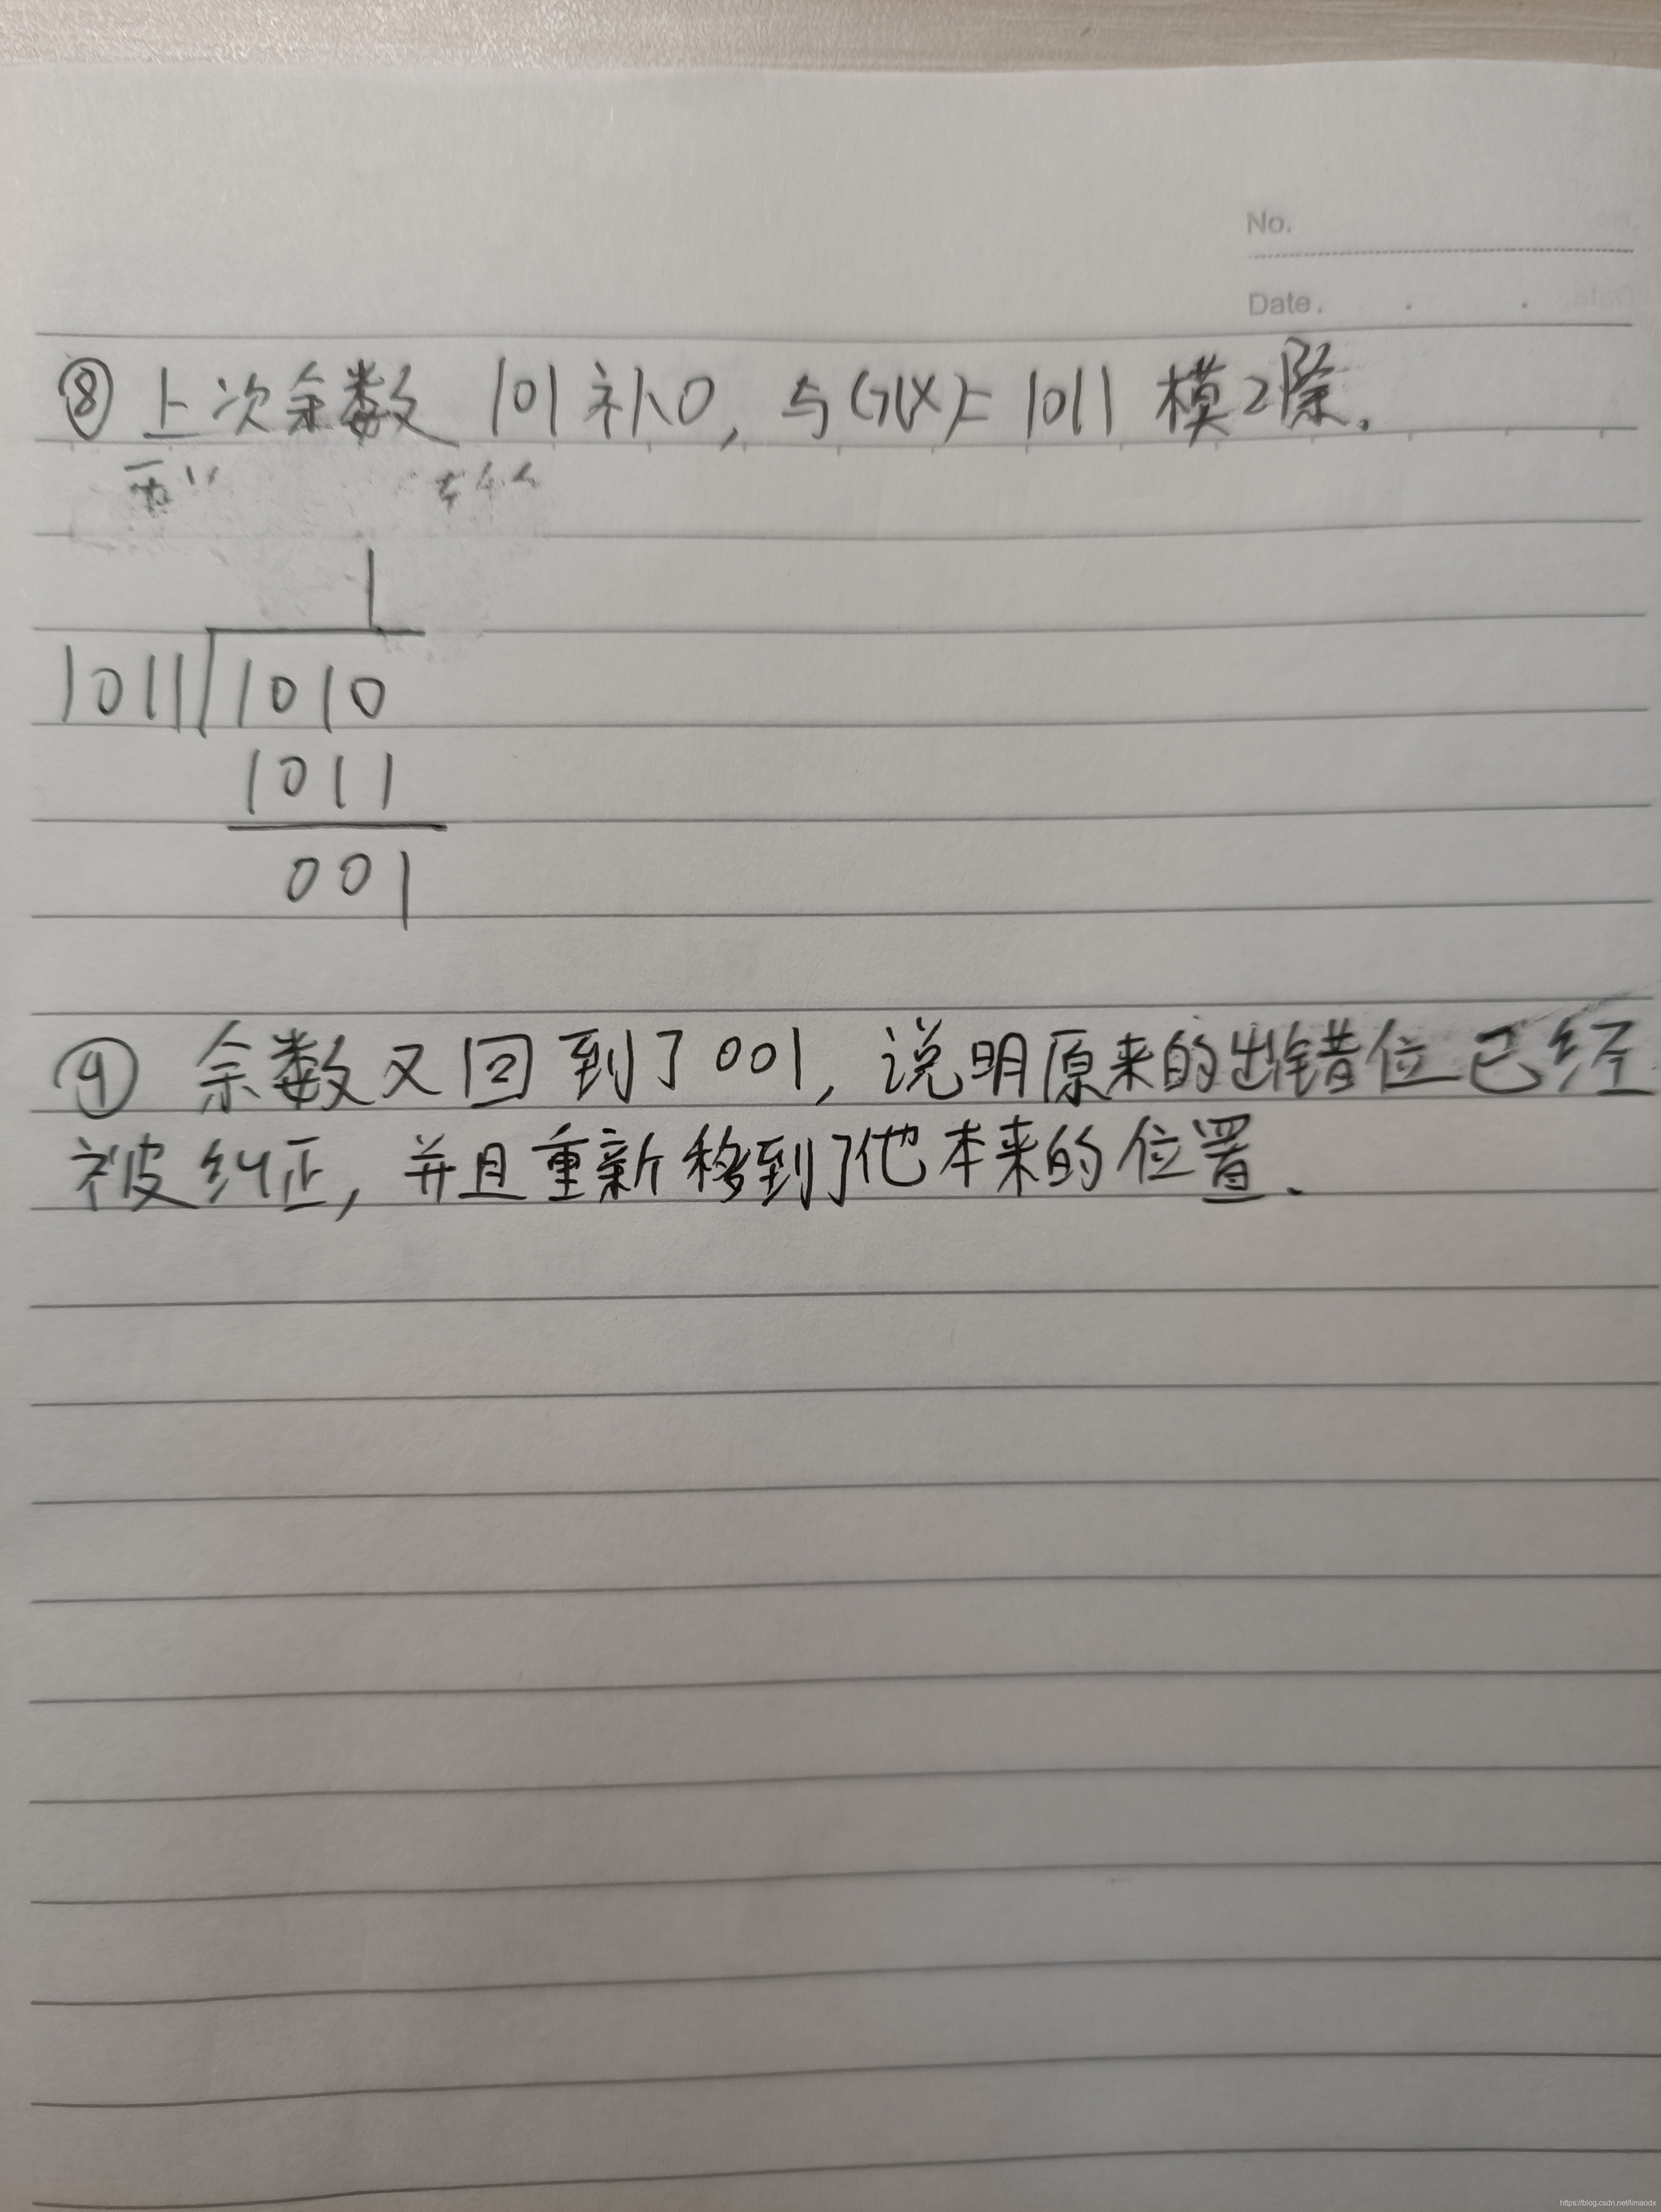 No.
Date.
⑧ 上次余数 101 补0, 与G(X)=1011 模2除.
1
1011 1010
1011
001
⑨ 余数又回到了001, 说明原来的出错位已经
被纠正, 并且重新移到了他本来的位置.
https://blog.csdn.net/limaodx